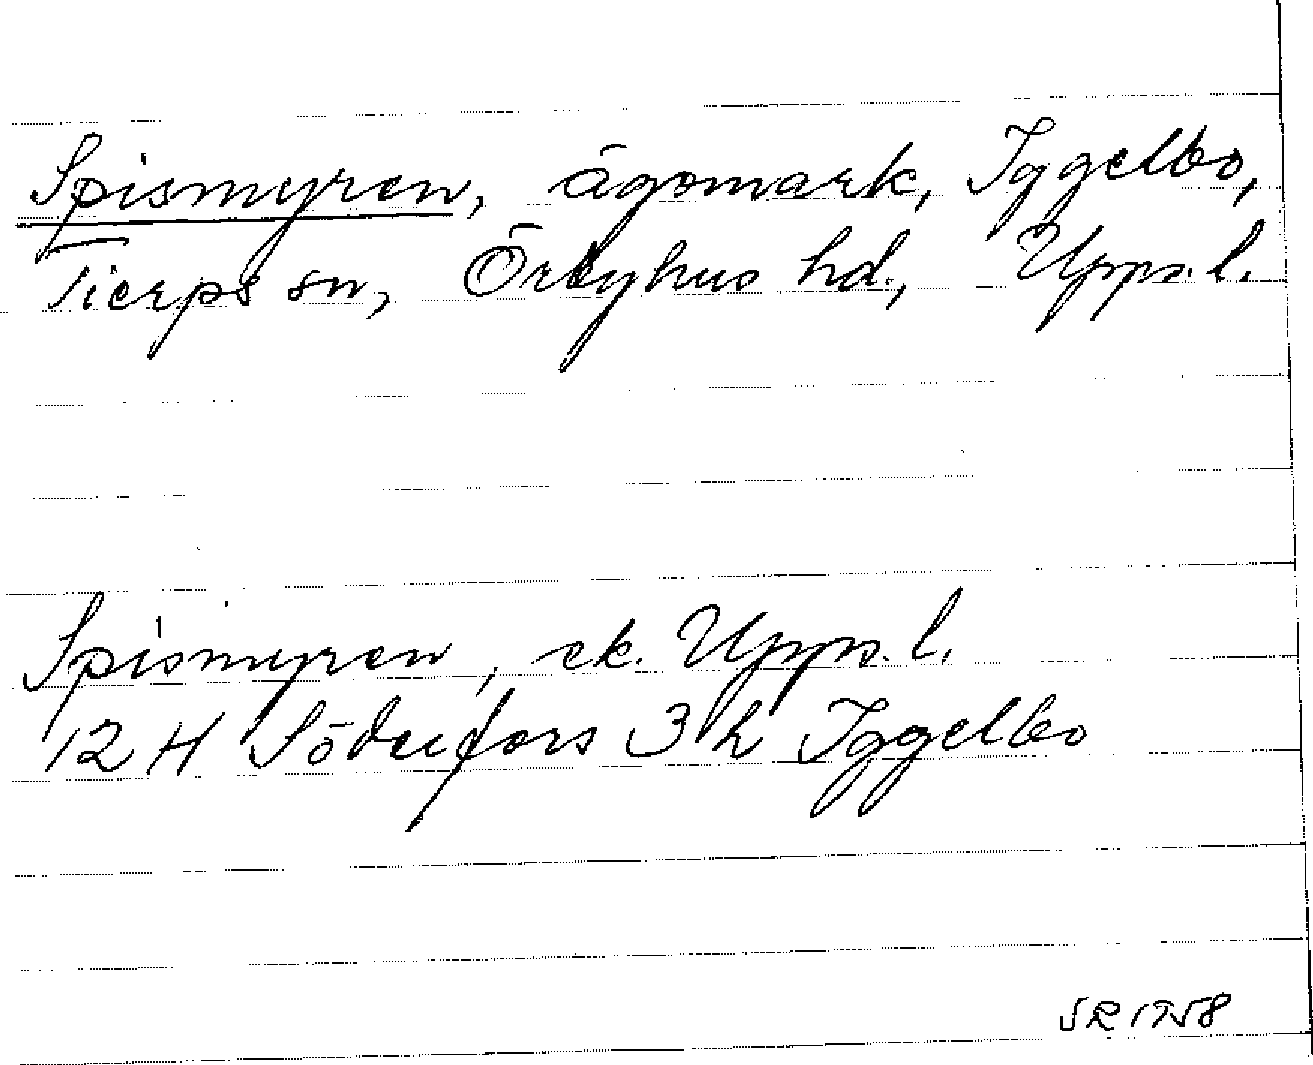 Spismyren, ägomark, Iggelbo,
Tierps sn, Örbyhus hd., Upps. l.
Spismyren, ek. Upps. l.
12 H Söderfors 3 h Iggelbo
SR 1958